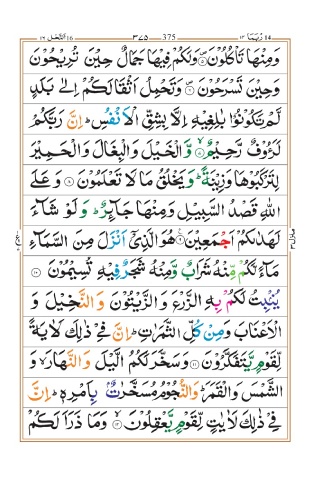 النحل ١٦ ٣٧٥ 375 ربما ١٤
وَمِنْهَا تَاْكُلُوْنَ ۪۝٥ وَلَكُمْ فِيْهَا جَمَالٌ حِيْنَ تُرِيْحُوْنَ
وَحِيْنَ تَسْرَحُوْنَ ۪۝٦ وَتَحْمِلُ اَثْقَالَكُمْ اِلٰى بَلَدٍ
لَّمْ تَكُوْنُوْا بٰلِغِيْهِ اِلَّا بِشِقِّ الْاَنْفُسِ ؕ اِنَّ رَبَّكُمْ
لَرَءُوْفٌ رَّحِيْمٌ ۙ۝٧ وَّ الْخَيْلَ وَالْبِغَالَ وَالْحَمِيْرَ
لِتَرْكَبُوْهَا وَزِيْنَةً ؕ وَيَخْلُقُ مَا لَا تَعْلَمُوْنَ ۝٨ وَعَلَى
اللّٰهِ قَصْدُ السَّبِيْلِ وَمِنْهَا جَآئِرٌ ؕ وَلَوْ شَآءَ
لَهَدٰىكُمْ اَجْمَعِيْنَ ۝٩ هُوَ الَّذِيْۤ اَنْزَلَ مِنَ السَّمَآءِ
مَآءً لَّكُمْ مِّنْهُ شَرَابٌ وَّمِنْهُ شَجَرٌ فِيْهِ تُسِيْمُوْنَ ۝١٠
يُنْۢبِتُ لَكُمْ بِهِ الزَّرْعَ وَالزَّيْتُوْنَ وَالنَّخِيْلَ وَ
الْاَعْنَابَ وَمِنْ كُلِّ الثَّمَرٰتِ ؕ اِنَّ فِيْ ذٰلِكَ لَاٰيَةً
لِّقَوْمٍ يَّتَفَكَّرُوْنَ ۝١١ وَسَخَّرَ لَكُمُ الَّيْلَ وَالنَّهَارَ ۙ وَ
الشَّمْسَ وَالْقَمَرَ ؕ وَالنُّجُوْمُ مُسَخَّرٰتٌۢ بِاَمْرِهٖ ؕ اِنَّ
فِيْ ذٰلِكَ لَاٰيٰتٍ لِّقَوْمٍ يَّعْقِلُوْنَ ۙ۝١٢ وَمَا ذَرَاَ لَكُمْ